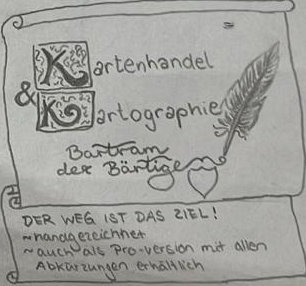 Kartenhandel
& Kartographie
Bartram
der Bärtige
DER WEG IST DAS ZIEL!
~handgezeichnet
~auch als Pro-version mit allen
Abkürzungen erhältlich